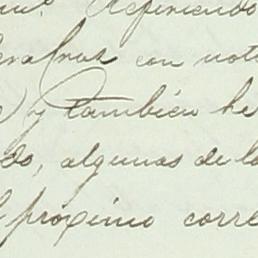 Refiriendo
Veracruz con not
) y también he
do, algunas de lo
l próximo corre